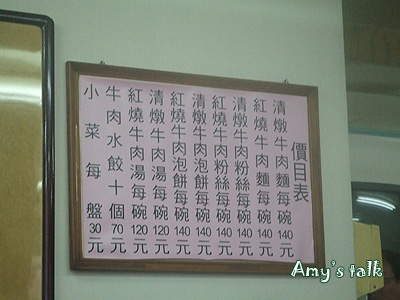 價目表
清燉牛肉麵每碗140元
紅燒牛肉麵每碗140元
清燉牛肉粉絲每碗140元
紅燒牛肉粉絲每碗140元
清燉牛肉泡餅每碗140元
紅燒牛肉泡餅每碗140元
清燉牛肉湯每碗120元
紅燒牛肉湯每碗120元
牛肉水餃十個70元
小菜每盤30元
Amy's talk